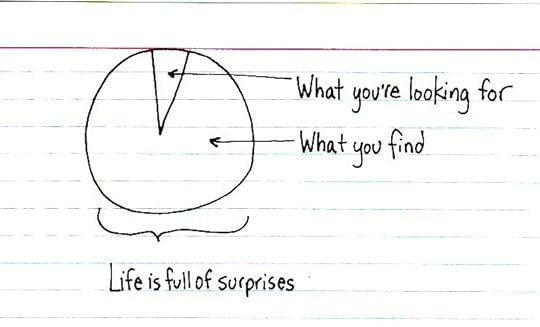 What you're looking for
What you find
Life is full of surprises